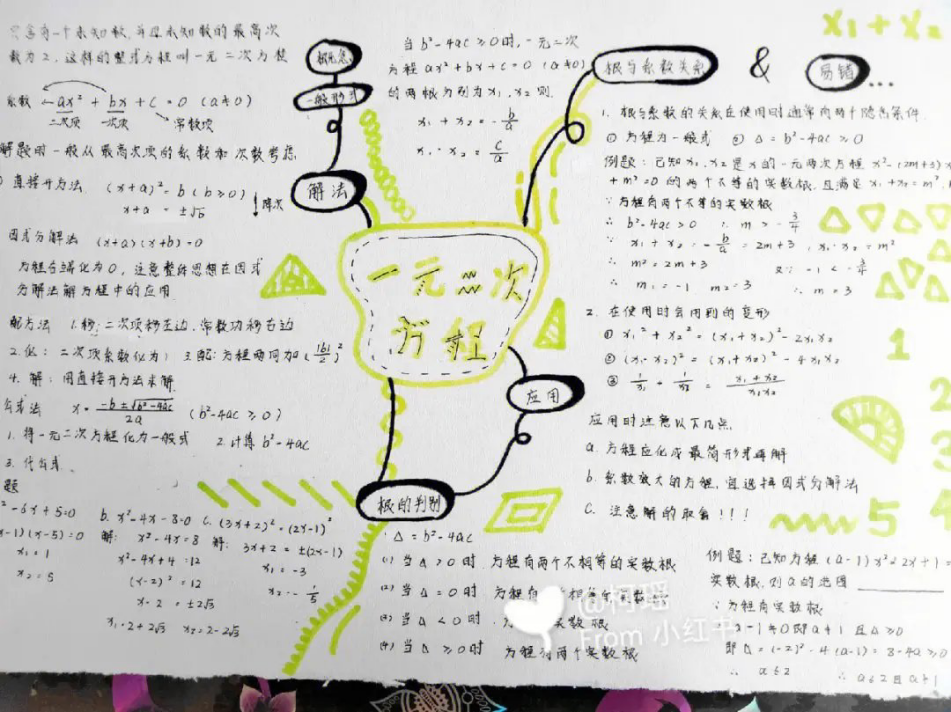 只含有一个未知数,并且未知数的最高次
数为2,这样的整式方程叫一元二次方程
概念
一般形式
系数 ax² + bx + c = 0 (a≠0)
二次项 一次项 常数项
解题时一般从最高次项的系数和次数考虑
解法
直接开方法 (x+a)² = b (b≥0)
x+a = ±√b 降次
因式分解法 (x+a)(x+b)=0
方程右端化为0,注意整体思想在因式
分解法解方程中的应用
配方法 1.移:二次项移左边,常数项移右边
2.化:二次项系数化为1 3.配:方程两同加(|b|/2)²
4.解:用直接开方法求解
公式法 x = -b±√b²-4ac / 2a (b²-4ac≥0)
1.将一元二次方程化为一般式 2.计算b²-4ac
3.代公式
题
²-6x+5=0
x-1)(x-5)=0
x₁=1
x₂=5
b. x²-4x-8=0
解: x²-4x=8
x²-4x+4=12
(x-2)²=12
x-2=±2√3
x₁=2+2√3 x₂=2-2√3
c. (3x+2)²=(2x-1)²
解: 3x+2=±(2x-1)
x₁=-3
x₂=-1/5
当b²-4ac≥0时,一元二次
方程ax²+bx+c=0 (a≠0)
的两根为别为x₁,x₂则
x₁+x₂=-b/a
x₁·x₂=c/a
一元二次
方程
应用
根的判别
△=b²-4ac
(1)当△>0时 方程有两个不相等的实数根
(2)当△=0时 方程有 相等的实数
(3)当△<0时 方 实数根
(4)当△≥0时 方程有两个实数根
根与系数关系 & 易错...
x₁+x₂
1.根与系数的关系在使用时通常有两个隐含条件
①方程为一般式 ②△=b²-4ac≥0
例题:已知x₁,x₂是x的一元两次方程x²-(2m+3)x
+m²=0的两个不等的实数根,且满足x₁+x₂=m²
∵方程有两个不等的实数根
∴b²-4ac>0 ∴m>-3/4
∵x₁+x₂=-b/a=2m+3,x₁·x₂=m²
∴m²=2m+3 又∵-1<-3/4
∴m₁=-1 m₂=3 ∴m=3
2.在使用时会用到的变形
①x₁²+x₂²=(x₁+x₂)²-2x₁x₂
②(x₁-x₂)²=(x₁+x₂)²-4x₁x₂
③1/x₁+1/x₂=x₁+x₂/x₁x₂
1
2
3
4
5
应用时注意以下几点
a.方程应化成最简形式再解
b.系数底大的方程,宜选择因式分解法
c.注意解的取舍!!!
例题:已知方程(a-1)x²-2x+1=
实数根,则a的范围
∵方程有实数根
a-1≠0即a≠1且△≥0
即△=(-2)²-4(a-1)=8-4a≥0
∴a≤2 ∴a≤2且a≠1
@柯瑶
From 小红书